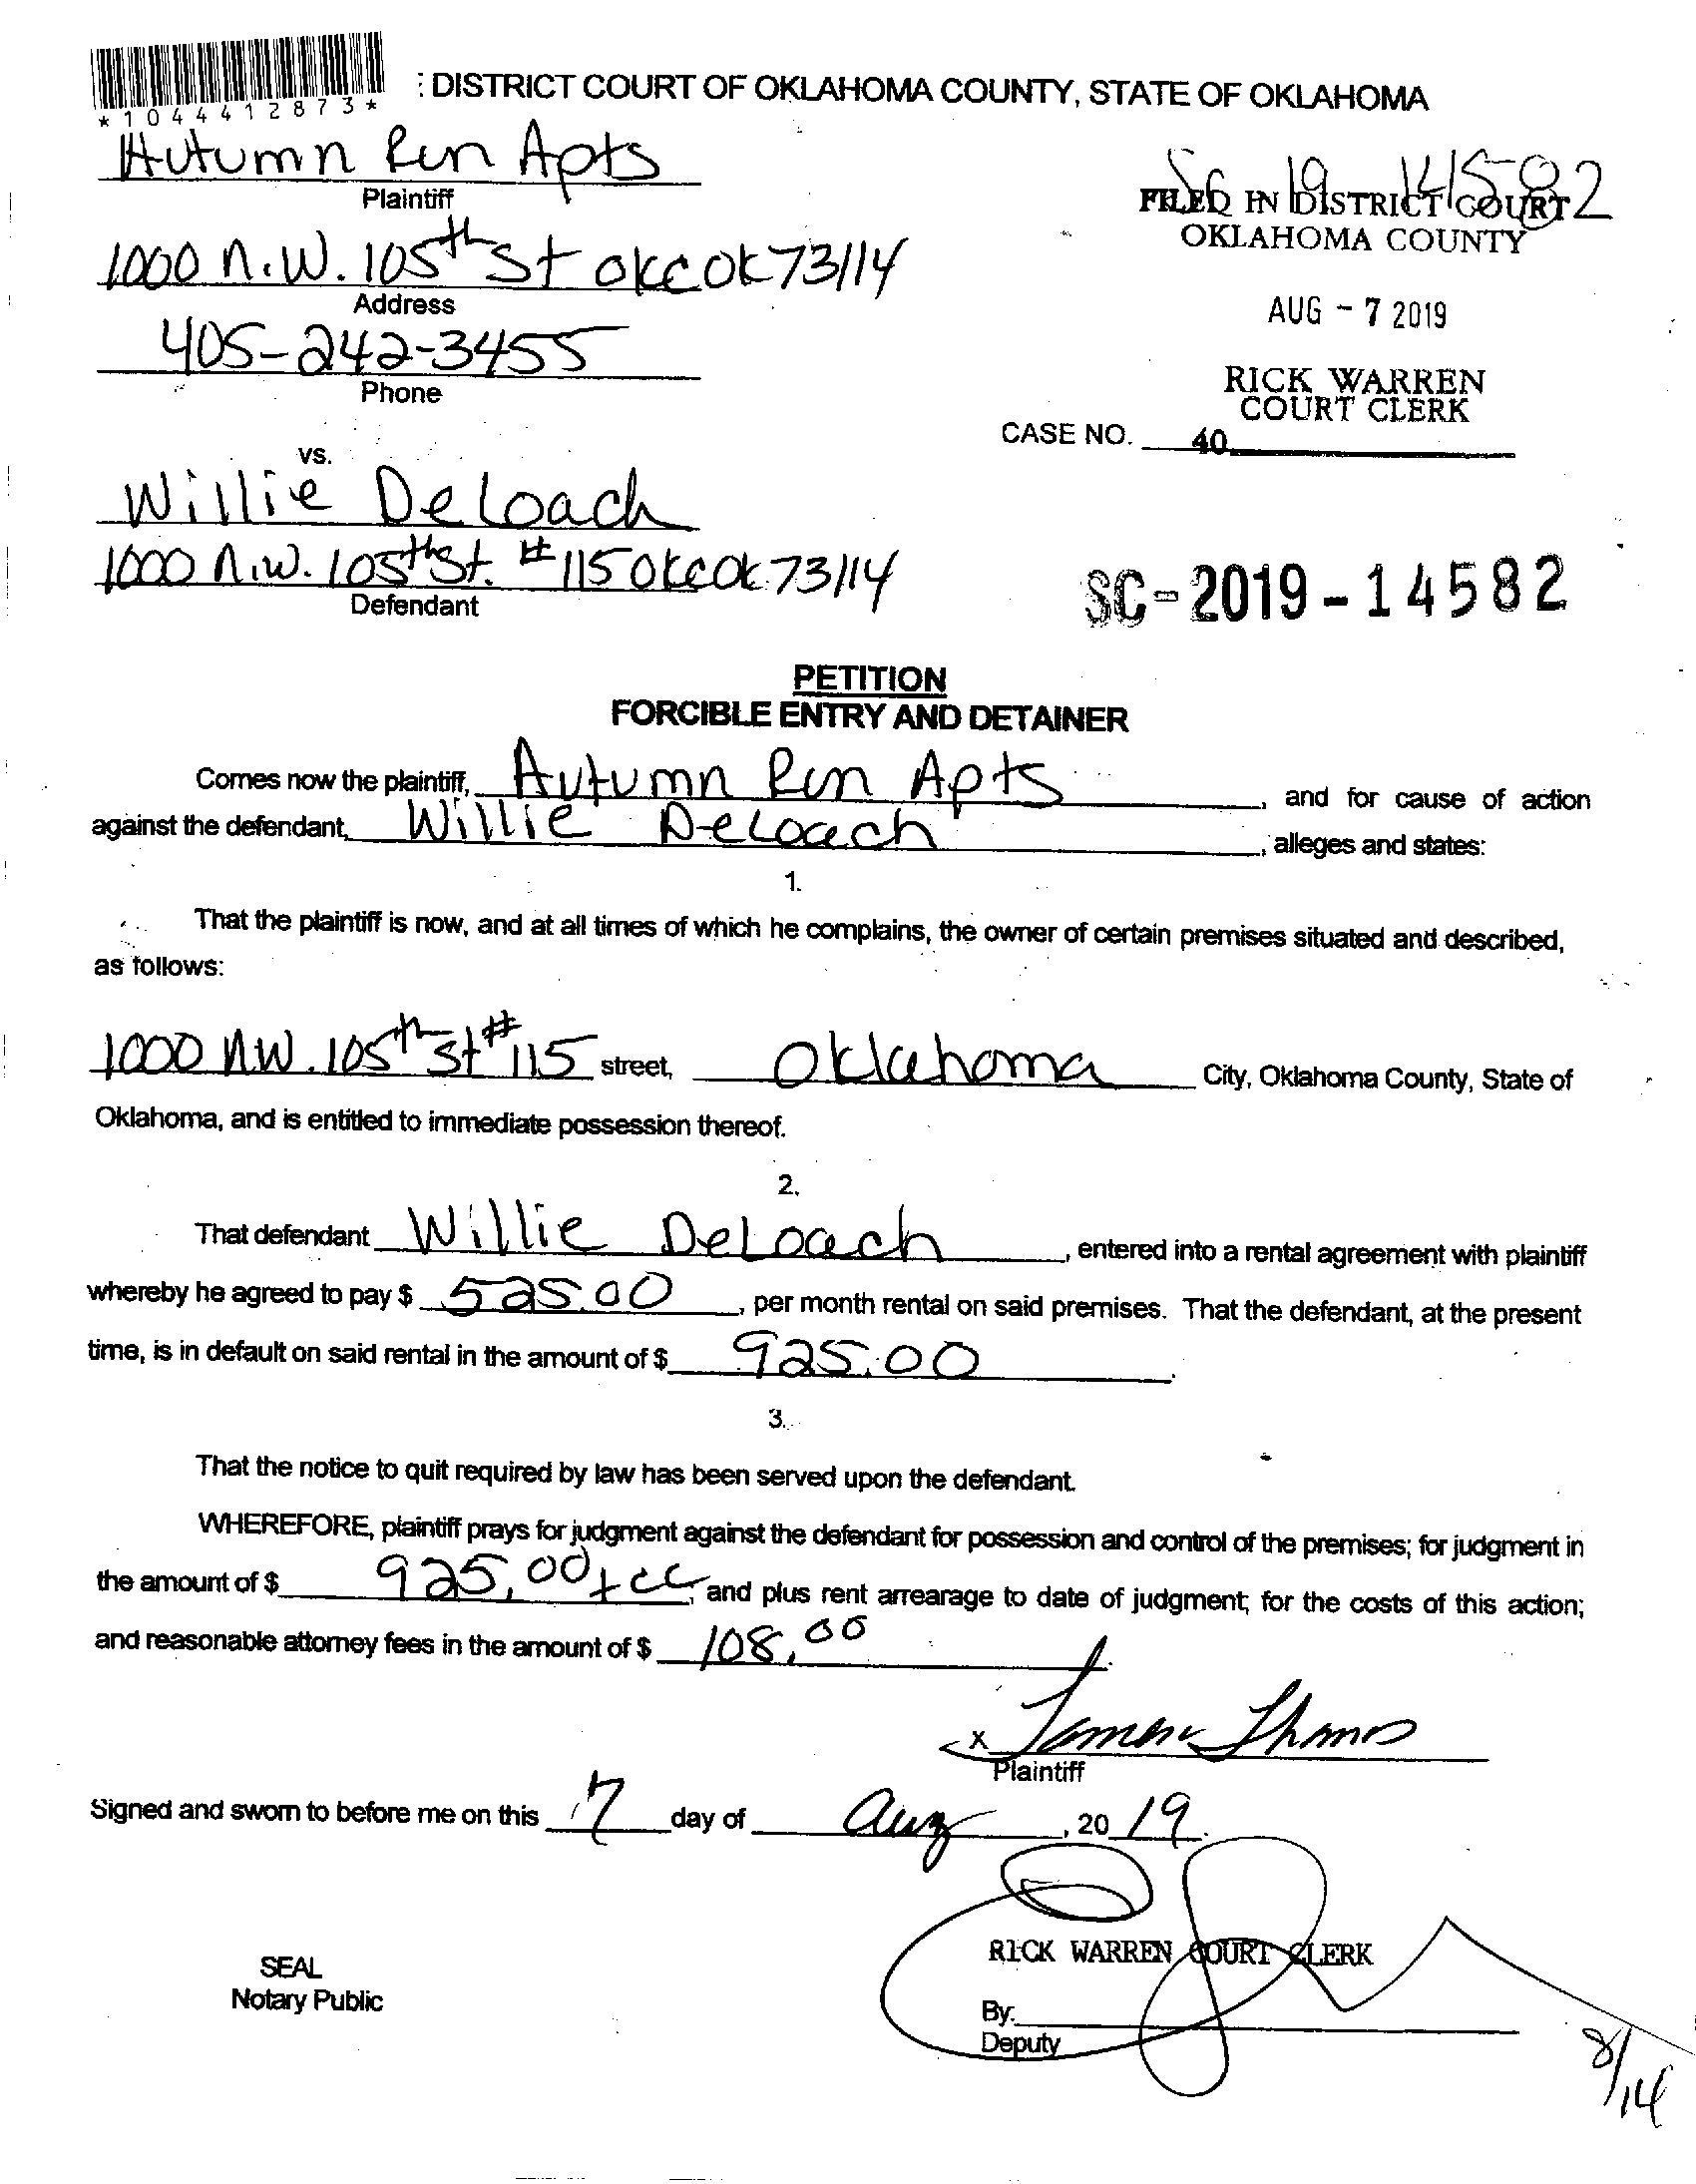 : DISTRICT COURT OF OKLAHOMA COUNTY, STATE OF OKLAHOMA
*1044412873*
Autumn Run Apts
Plaintiff
SC 19 14582
FILED IN DISTRICT COURT
OKLAHOMA COUNTY
1000 N.W. 105th St OKC OK 73114
Address
AUG - 7 2019
405-242-3455
Phone
RICK WARREN
COURT CLERK
CASE NO. 40
vs.
Willie DeLoach
1000 N.W. 105th St. #115 OKC OK 73114
Defendant
SC-2019-14582
PETITION
FORCIBLE ENTRY AND DETAINER
Comes now the plaintiff, Autumn Run Apts, and for cause of action
against the defendant, Willie DeLoach, alleges and states:
1.
That the plaintiff is now, and at all times of which he complains, the owner of certain premises situated and described,
as follows:
1000 NW. 105th St #115 street, Oklahoma City, Oklahoma County, State of
Oklahoma, and is entitled to immediate possession thereof.
2.
That defendant Willie DeLoach, entered into a rental agreement with plaintiff
whereby he agreed to pay $ 525.00, per month rental on said premises. That the defendant, at the present
time, is in default on said rental in the amount of $ 925.00.
3.
That the notice to quit required by law has been served upon the defendant.
WHEREFORE, plaintiff prays for judgment against the defendant for possession and control of the premises; for judgment in
the amount of $ 925.00 + CC, and plus rent arrearage to date of judgment; for the costs of this action;
and reasonable attorney fees in the amount of $ 108.00.
X
Plaintiff
Signed and sworn to before me on this 7 day of Aug, 20 19.
RICK WARREN COURT CLERK
SEAL
Notary Public
By:
Deputy
8/14